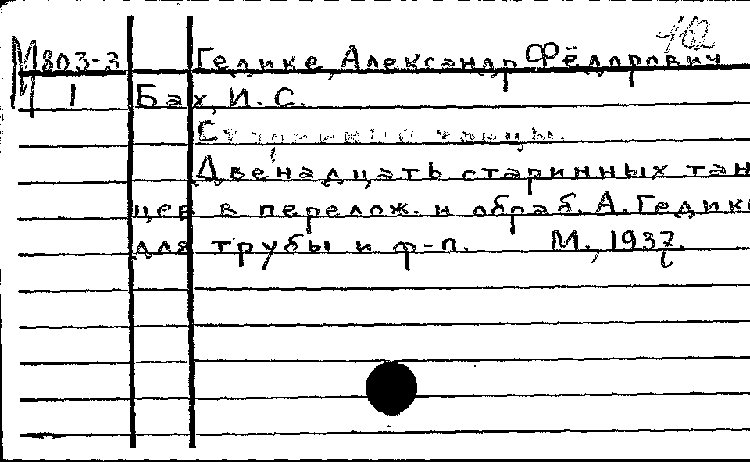 М803-3 Гедике, Александр Фёдорович
1 Бах, И. С.
Старинные танцы.
Двенадцать старинных тан
цев в перелож. и обраб. А. Гедике
для трубы и ф-п. М., 1937.